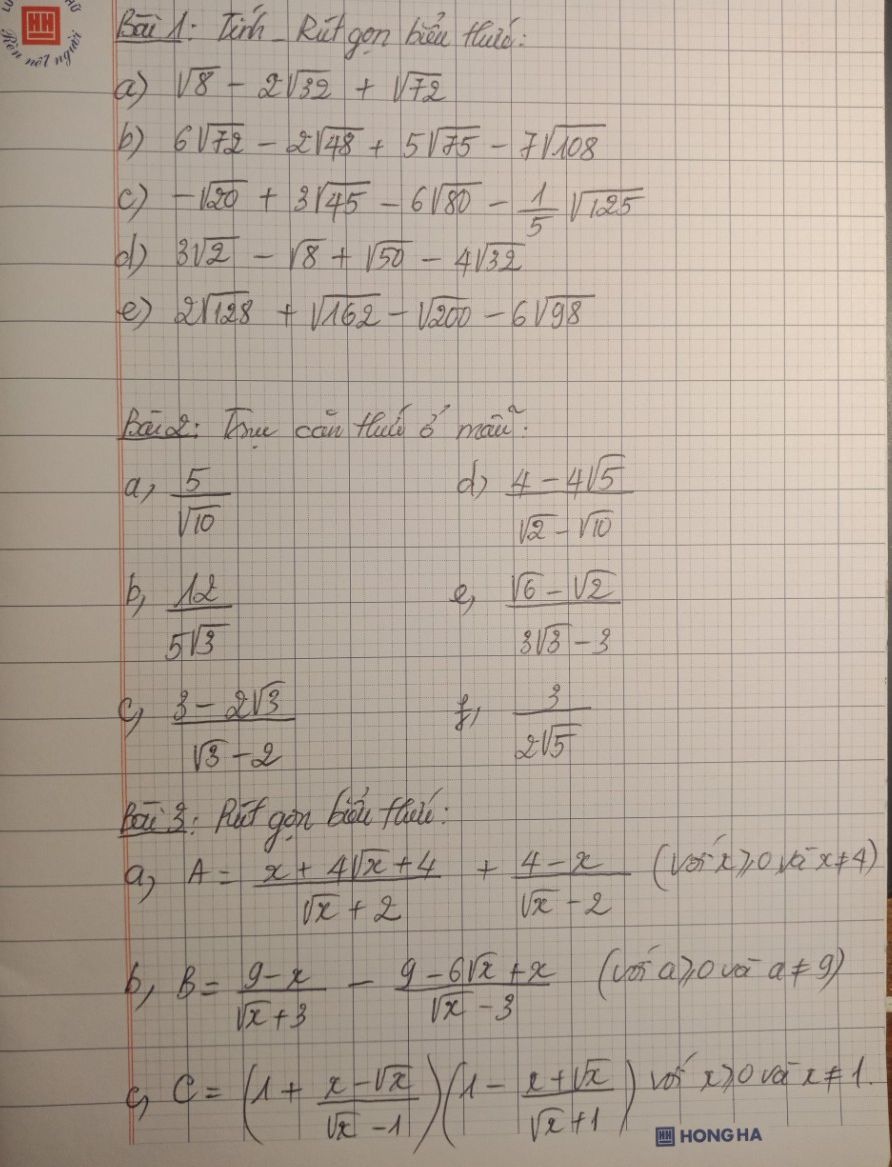 Rèn nét người
Bài 1: Tính - Rút gọn biểu thức:
a) √8 - 2√32 + √72
b) 6√72 - 2√48 + 5√75 - 7√108
c) -√20 + 3√45 - 6√80 - 1/5 √125
d) 3√2 - √8 + √50 - 4√32
e) 2√128 + √162 - √200 - 6√98
Bài 2: Trục căn thức ở mẫu:
a, 5/√10
d) (4 - 4√5)/(√2 - √10)
b, 12/(5√3)
e, (√6 - √2)/(3√3 - 3)
c, (3 - 2√3)/(√3 - 2)
f, 3/(2√5)
Bài 3: Rút gọn biểu thức:
a, A = (x + 4√x + 4)/(√x + 2) + (4 - x)/(√x - 2) (với x ⩾ 0 và x ≠ 4)
b, B = (9 - x)/(√x + 3) - (9 - 6√x + x)/(√x - 3) (với a ⩾ 0 và a ≠ 9)
c, C = (1 + (x - √x)/(√x - 1))(1 - (x + √x)/(√x + 1)) với x ⩾ 0 và x ≠ 1.
HH HONG HA